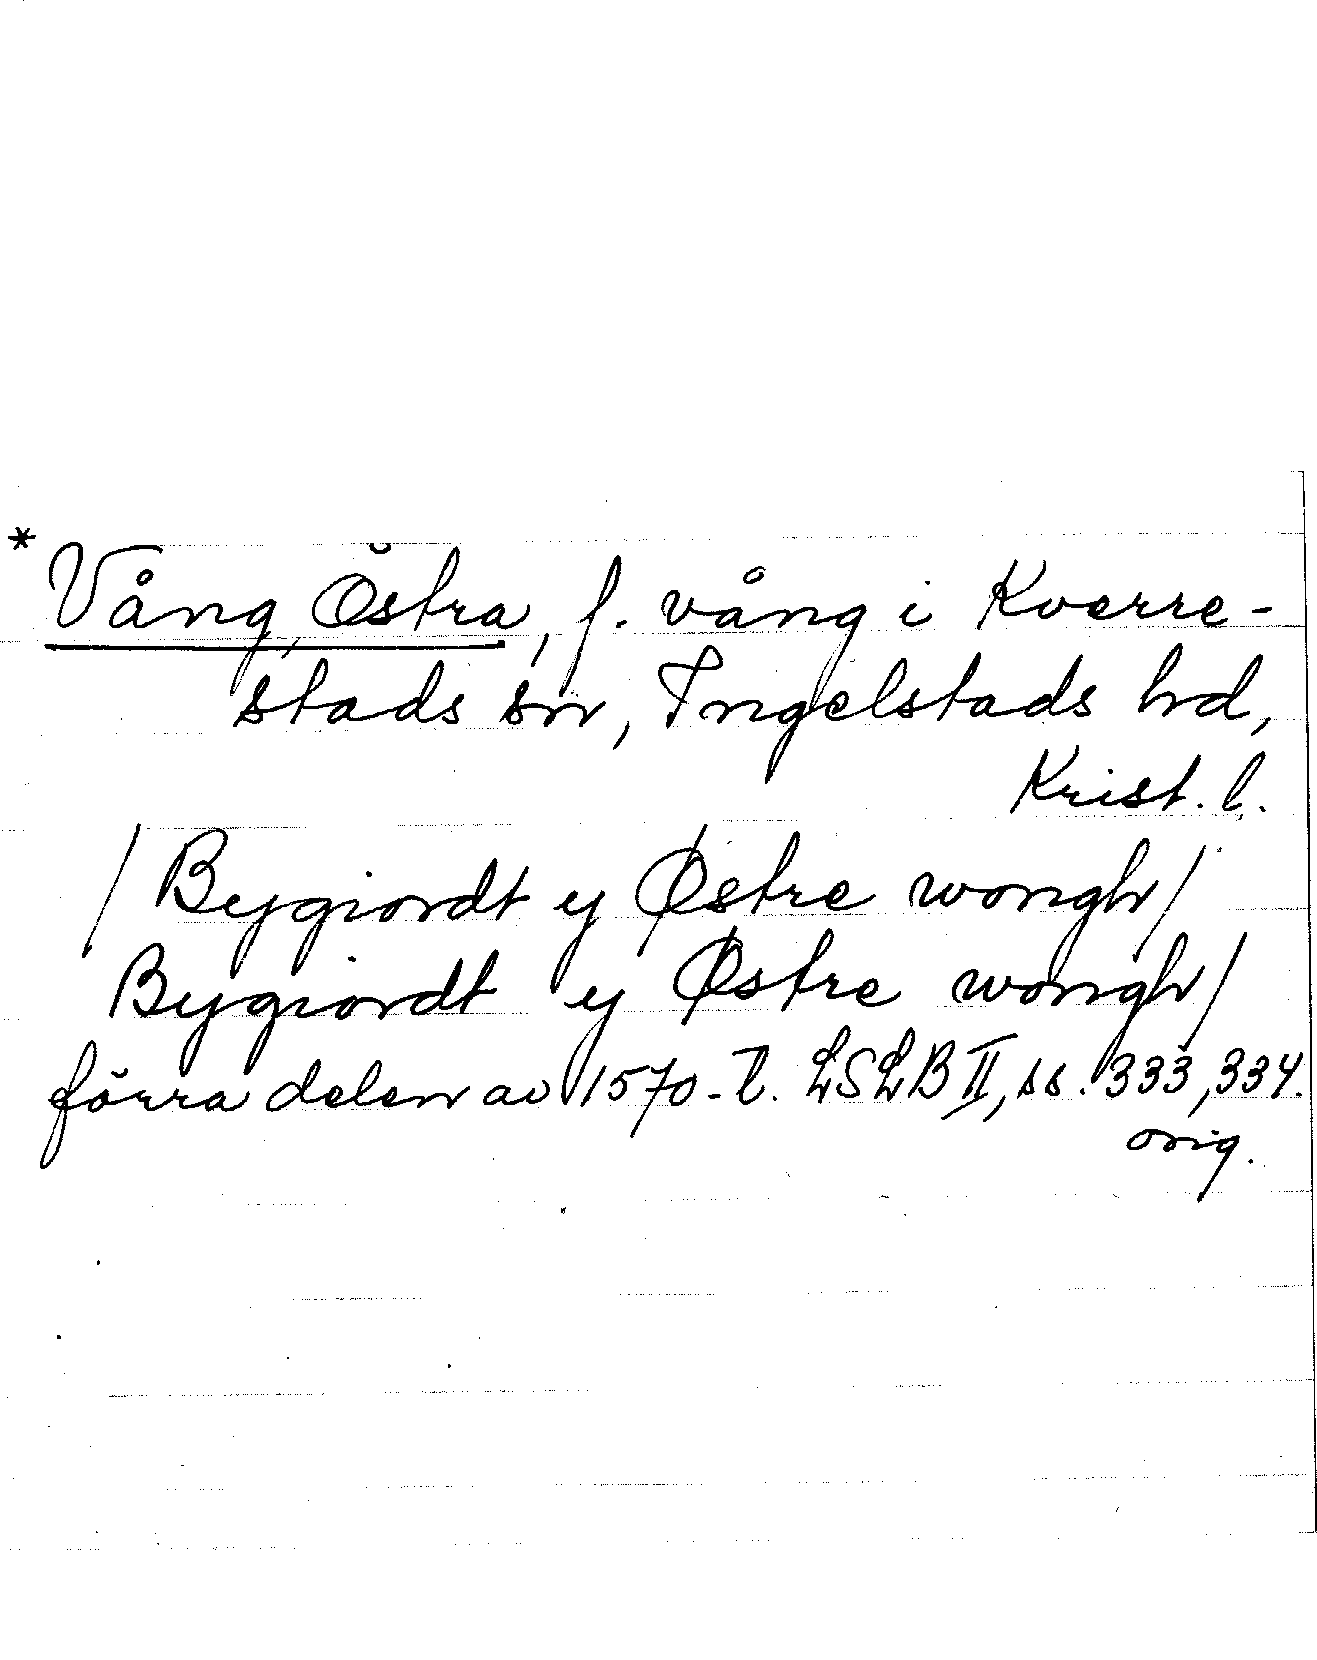 * Vång, Östra, f. vång i Kverre-
stads sn, Ingelstads hd,
Krist. l.
/ Bygiordt y Østre wongh /
Bygiordt y Østre wongh /
förra delen av 1570-t. LSLB II, ss. 333, 334.
orig.